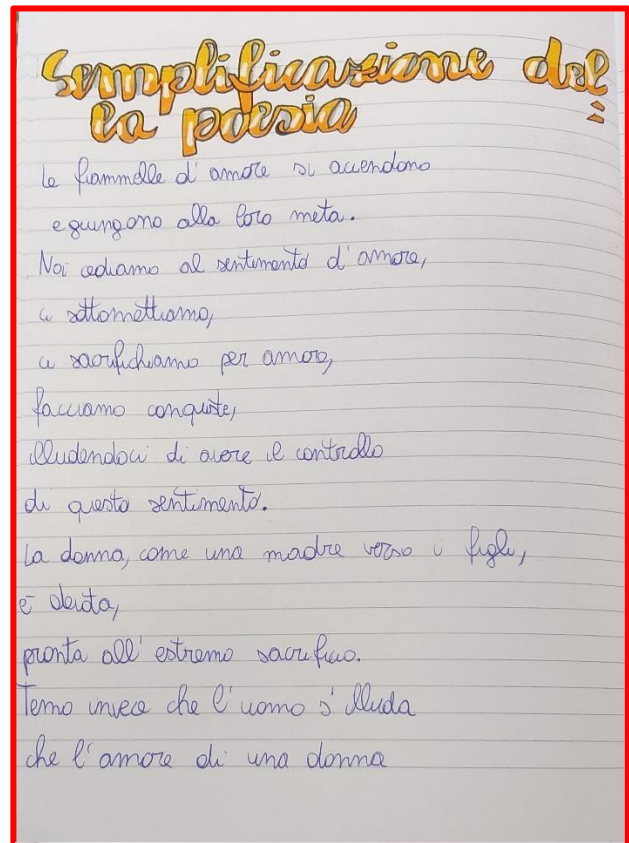 Semplificazione del
la poesia
Le fiammelle d'amore si accendono
e giungono alla loro meta.
Noi cediamo al sentimento d'amore,
ci sottomettiamo,
ci sacrifichiamo per amore,
facciamo conquiste,
illudendoci di avere il controllo
di questo sentimento.
La donna, come una madre verso i figli,
è decita,
pronta all'estremo sacrificio.
Temo invece che l'uomo s'illuda
che l'amore di una donna